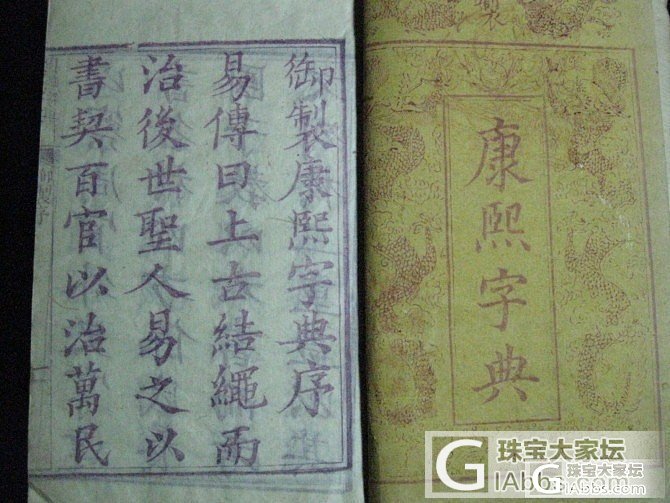 御製
康熙字典
御製康熙字典序
易傳曰上古結繩而
治後世聖人易之以
書契百官以治萬民
御製序
一
珠宝大家坛
iAbb5.com